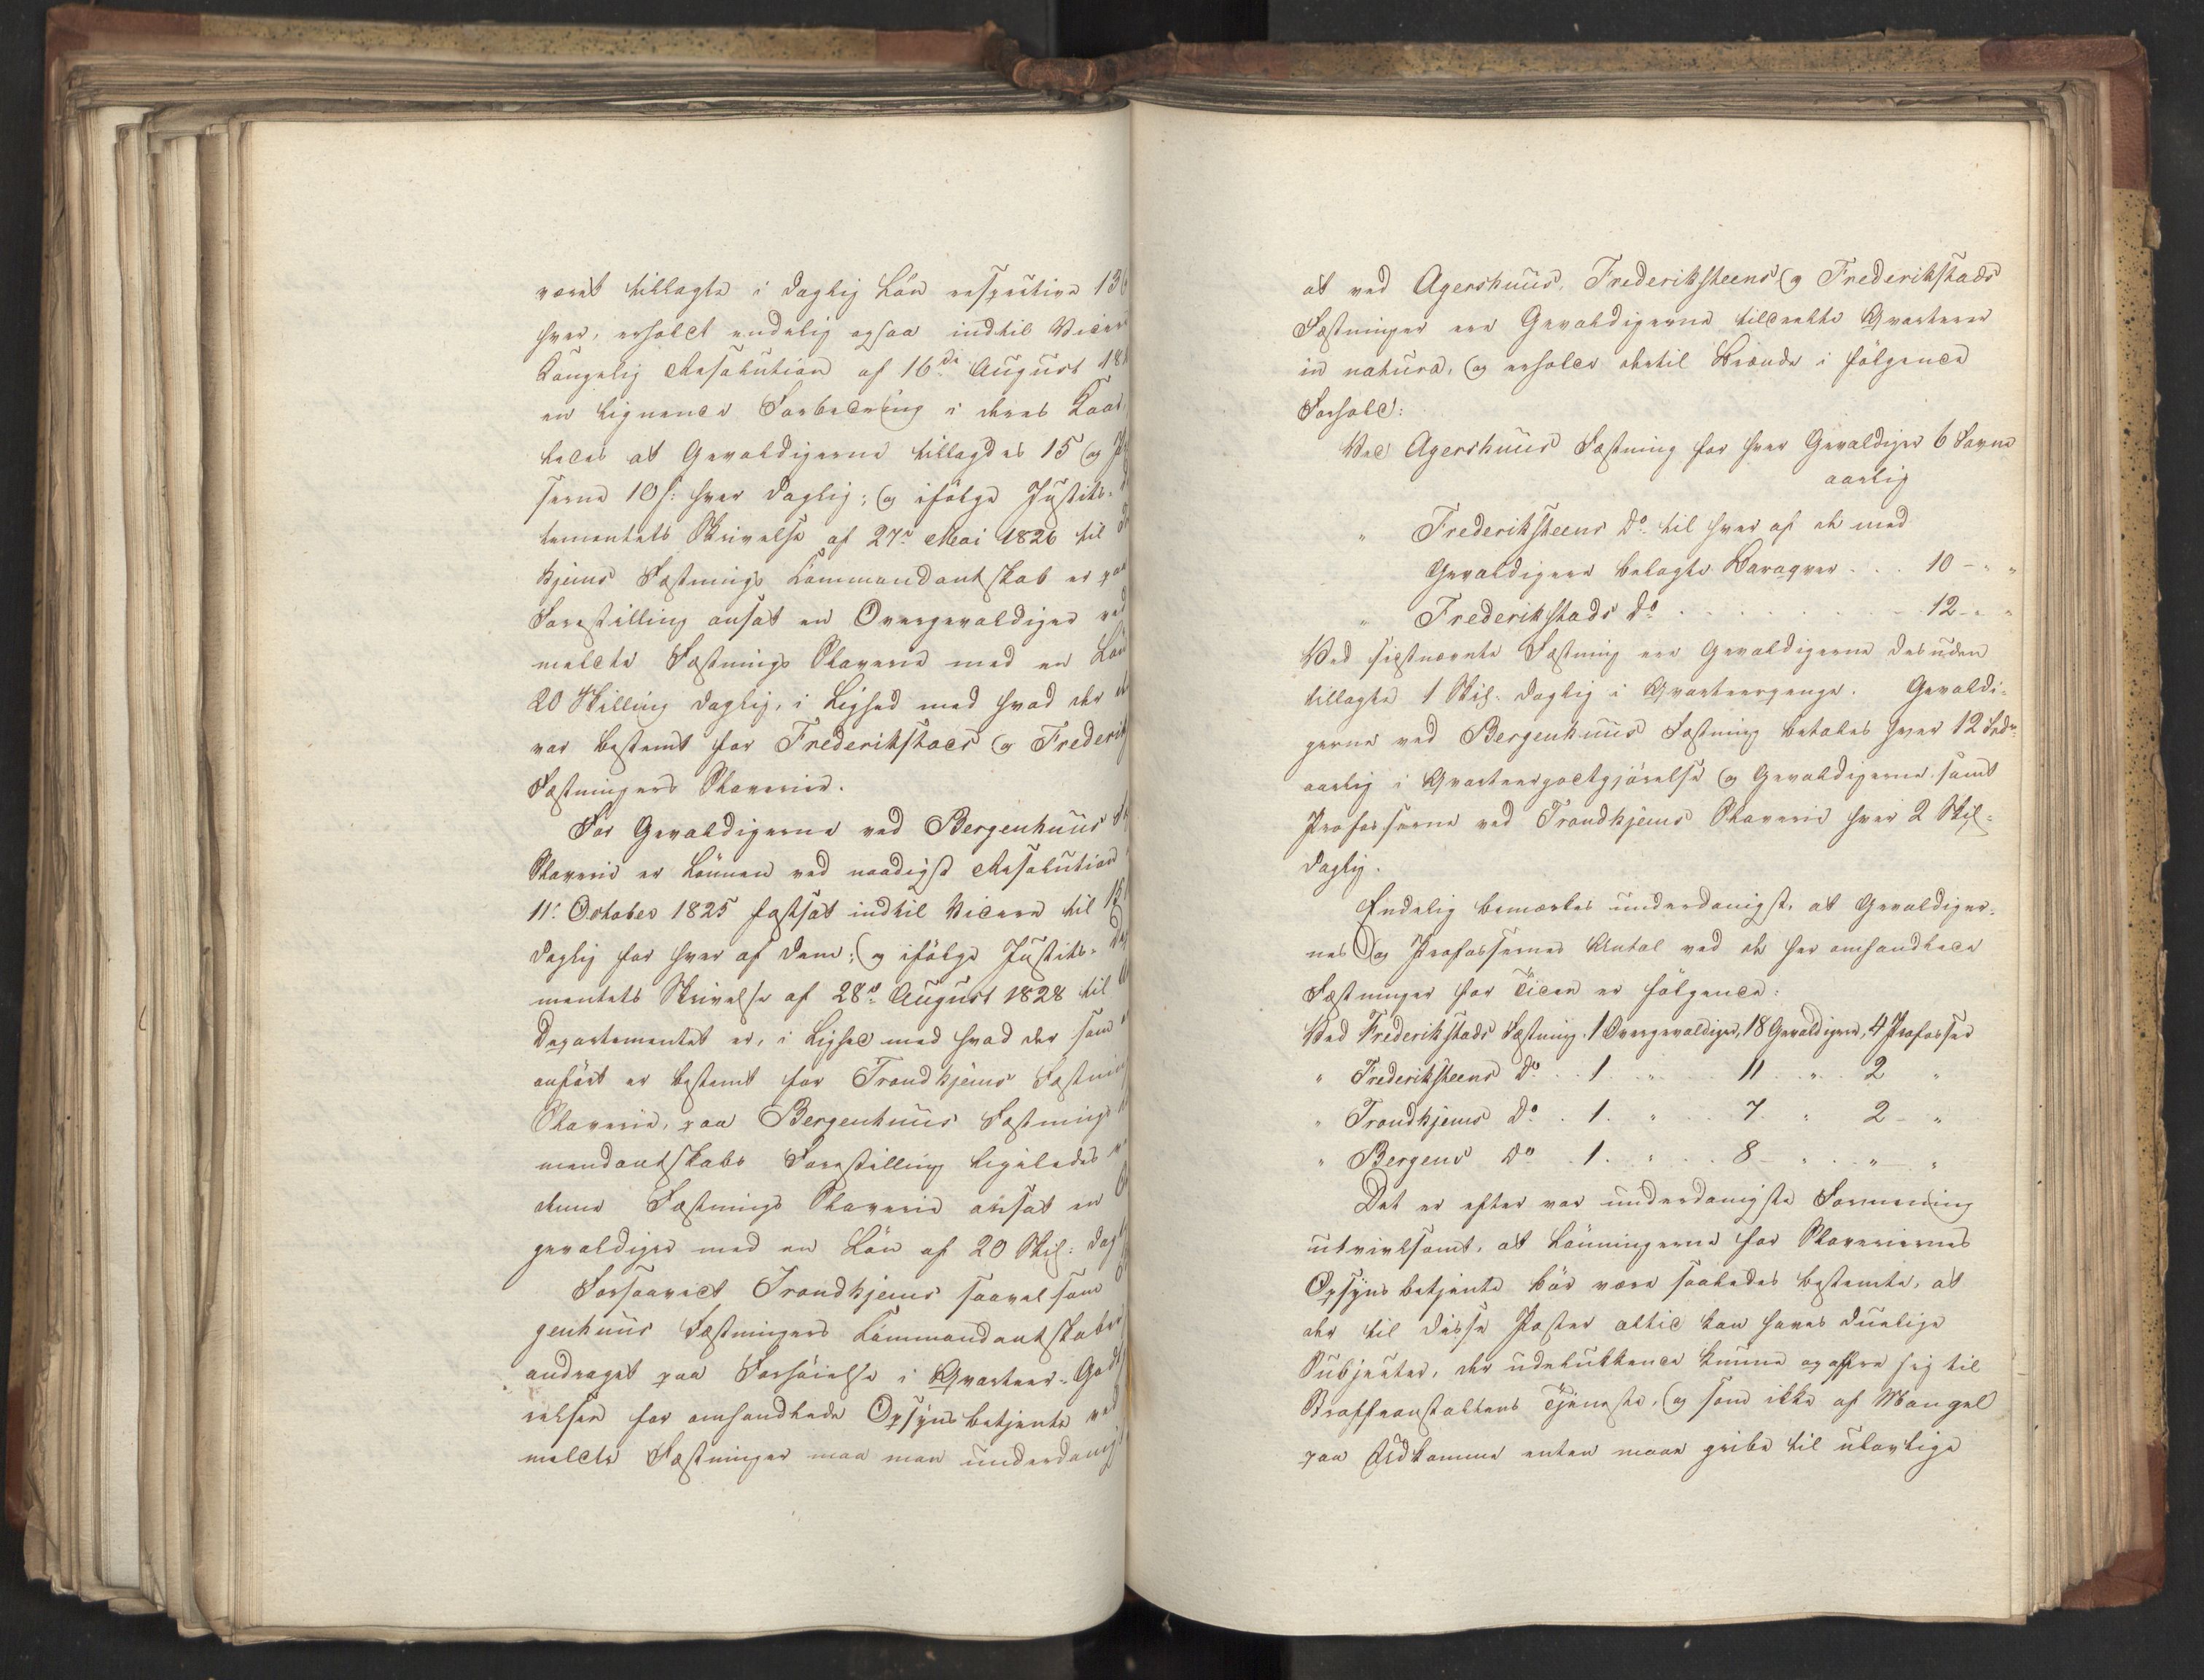 været tillagte i daglig Løn respective 13
hver, erholdt endelig ogsaa indtil Videre
Kongelig Resolution af 16de August 18
en lignende Forbedring i deres Kaar,
ledes at Gevaldigerne tillagdes 15 og
serne 10 s: hver daglig; og ifølge Justits-
tementets Skrivelse af 27de Mai 1826 til
hjems Fæstnings Commandantskab er paa
Forestilling ansat en Overgevaldiger ved
meldte Fæstnings Slaverie med en Løn
20 Skilling daglig, i Lighed med hvad der
var bestemt for Frederikstads og Frederik
Fæstningers Slaverier.
For Gevaldigerne ved Bergenhuus
Slaverie er Lønnen ved naadigst Resolution
11te October 1825 fastsat indtil Videre til 15
daglig for hver af dem; og ifølge Justits-
mentets Skrivelse af 28de August 1828 til
Departementet er, i Lighed med hvad der som
anført er bestemt for Trondhjems Fæstnings
Slaverie, paa Bergenhuus Fæstnings
mandantskabs Forestilling ligeledes
denne Fæstnings Slaverie ansat en
gevaldiger med en Løn af 20 Skil: dagl
Forsaavidt Trondhjems saavel som
genhuus Fæstningers Commandantskaber
andraget paa Forhøielse i Qvarteer-Godt
relsen for omhandlede Opsynsbetjente ved
meldte Fæstninger maa man underdanigst
at ved Agershuus, Frederiksteens og Frederikstads
Fæstninger ere Gevaldigerne tildeelte Qvarterer
in natura, og erholder dertil Brænde i følgende
Forhold:
Ved Agershuus Fæstning for hver Gevaldiger 6 Favne
aarlig
" Frederiksteens Do til hver af de med
Gevaldigere belagte Baraqver . . . 10 - " "
" Frederikstads Do . . . . . . 12 - " "
Ved sidstnævnte Fæstning ere Gevaldigerne desuden
tillagte 1 Skil. daglig i Qvarteerpenge. Gevaldi-
gerne ved Bergenhuus Fæstning betales hver 12 Spdr
aarlig i Qvarteergodtgjørelse og Gevaldigerne samt
Profosserne ved Trondhjems Slaverie hver 2 Skil-
daglig.
Endelig bemærkes underdanigst, at Gevaldiger-
nes og Profossernes Antal ved de her omhandlede
Fæstninger for Tiden er følgende:
Ved Frederikstads Fæstning 1 Overgevaldiger, 18 Gevaldigere, 4 Profosser
" Frederiksteens Do . . 1 . " . 11 . " . 2 "
" Trondhjems Do . 1. " . 7. " 2 - "
" Bergens Do . 1. " . . 8 - " . " - "
Det er efter vor underdanigste Formening
utvivlsomt, at Lønningerne for Slaveriernes
Opsynsbetjente bør være saaledes bestemte, at
der til disse Poster altid kan haves duelige
Subjecter, der udelukkende kunne opoffre sig til
Straffeanstaltens Tjeneste, og som ikke af Mangel
paa Udkomme enten maae gribe til ulovlige